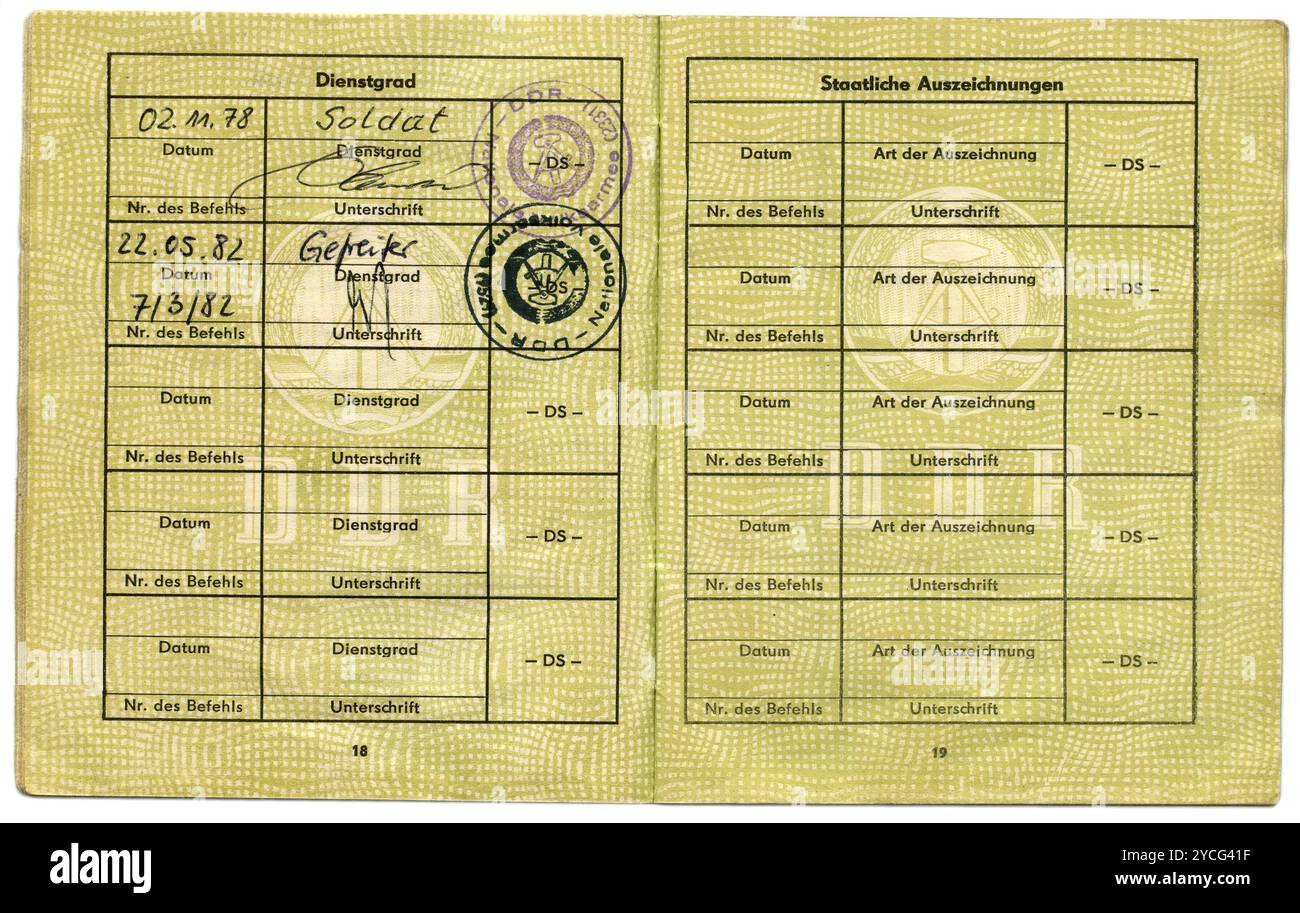 Dienstgrad
02.11.78 Soldat
Datum Dienstgrad – DS –
Nr. des Befehls Unterschrift
DDR – Nationale Volksarmee (2331)
22.05.82 Gefreiter
Datum Dienstgrad DS
7/3/82
Nr. des Befehls Unterschrift
DDR – Nationale Volksarmee
Datum Dienstgrad – DS –
Nr. des Befehls Unterschrift
Datum Dienstgrad – DS –
Nr. des Befehls Unterschrift
Datum Dienstgrad – DS –
Nr. des Befehls Unterschrift
DDR
18
Staatliche Auszeichnungen
Datum Art der Auszeichnung – DS –
Nr. des Befehls Unterschrift
Datum Art der Auszeichnung – DS –
Nr. des Befehls Unterschrift
Datum Art der Auszeichnung – DS –
Nr. des Befehls Unterschrift
Datum Art der Auszeichnung – DS –
Nr. des Befehls Unterschrift
Datum Art der Auszeichnung – DS –
Nr. des Befehls Unterschrift
DDR
19
alamy
alamy
Image ID: 2YCG41F
www.alamy.com